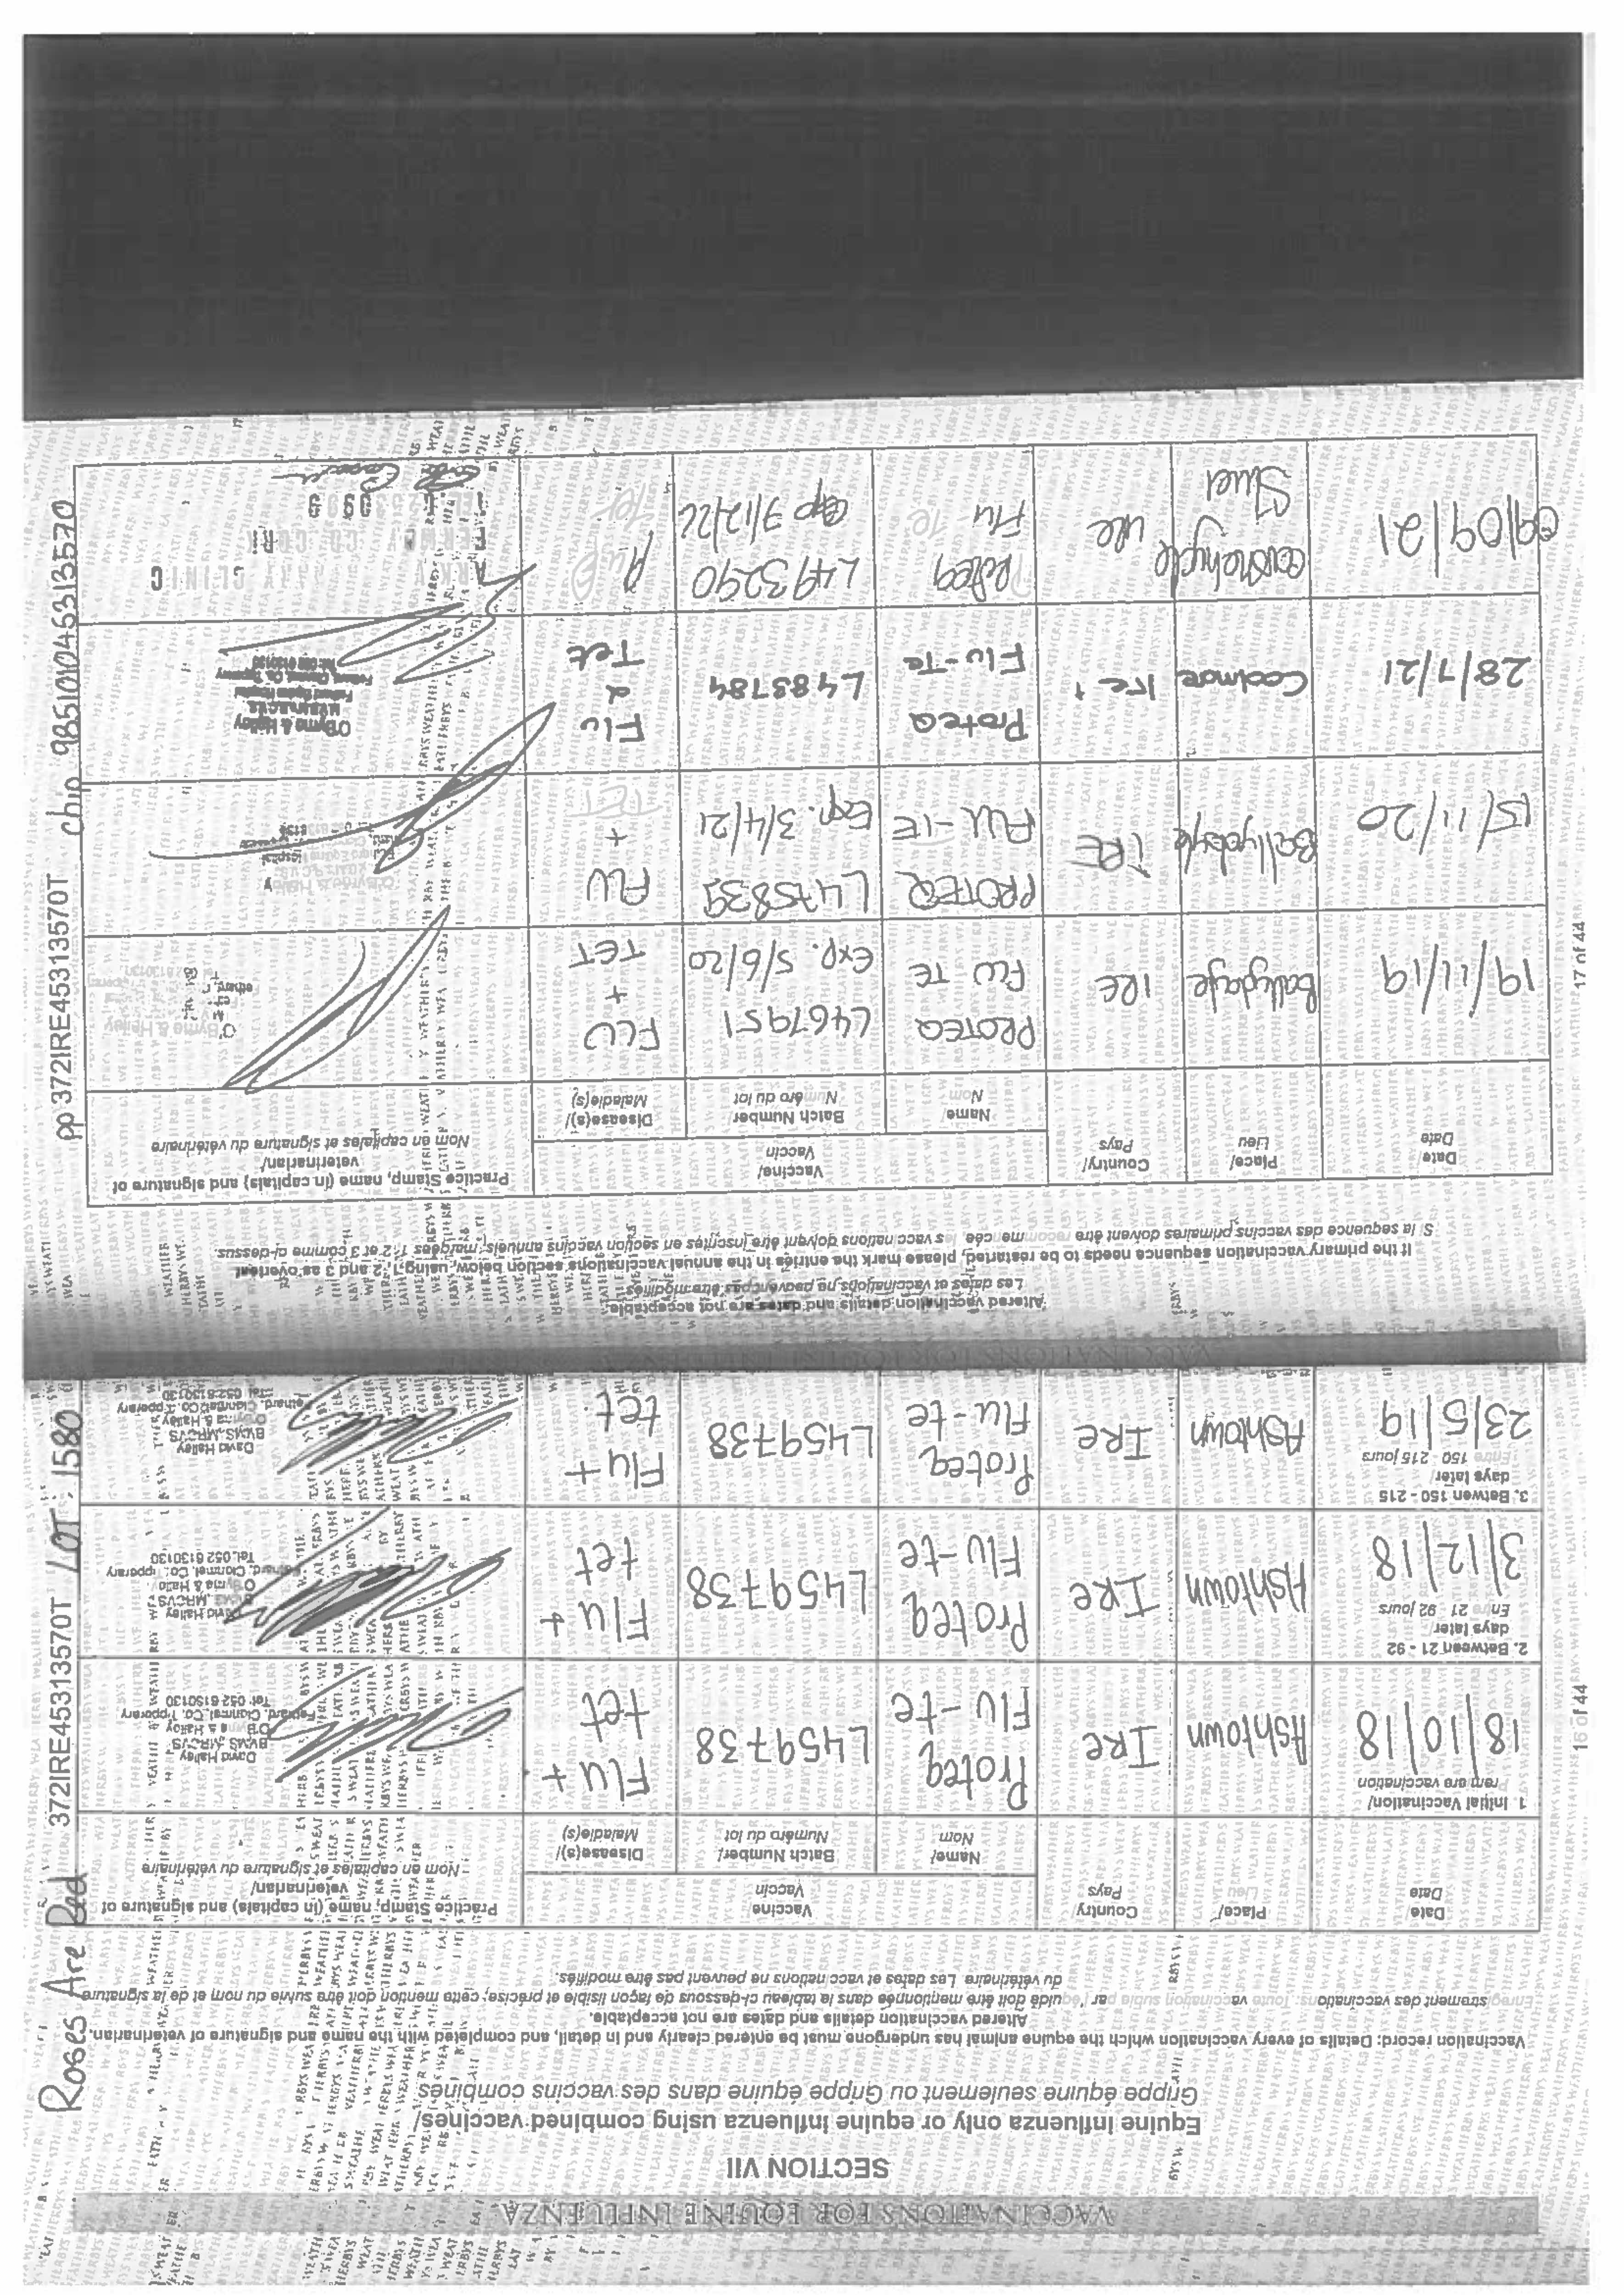 Roses Are Red 372IRE45313570T LOT: 1580
VACCINATIONS FOR EQUINE INFLUENZA
SECTION VII
Equine influenza only or equine influenza using combined vaccines/
Grippe équine seulement ou Grippe équine dans des vaccins combinés
Vaccination record: Details of every vaccination which the equine animal has undergone must be entered clearly and in detail, and completed with the name and signature of veterinarian.
Altered vaccination details and dates are not acceptable.
Enregistrement des vaccinations: Toute vaccination subie par l'équidé doit être mentionnée dans le tableau ci-dessous de façon lisible et précise; cette mention doit être suivie du nom et de la signature
du vétérinaire. Les dates et vaccinations ne peuvent pas être modifiés.
Date Place/ Country Vaccine Practice Stamp, name (in capitals) and signature of
Date Lieu Pays Vaccin veterinarian/
Name/ Batch Number/ Disease(s)/ Nom en capitales et signature du vétérinaire
Nom Numéro du lot Maladie(s)
1 Initial Vaccination/
18/10/18 Ashtown IRE Proteq Flu-te L459738 Flu + tet
David Halley
BVMS, MRCVS
Fethard, Clonmel, Co. Tipperary
Tel: 052 6130130
2. Between 21 - 92
days later/
Entre 21 - 92 jours
3/12/18 Ashtown IRE Proteq Flu-te L459738 Flu + tet
David Halley
BVMS, MRCVS
Fethard, Clonmel, Co. Tipperary
Tel: 052 6130130
3. Betwen 150 - 215
days later/
Entre 150 - 215 jours
23/5/19 Ashtown IRE Proteq Flu-te L459738 Flu + tet
David Halley
BVMS, MRCVS
Fethard, Clonmel, Co. Tipperary
Tel: 052 6130130
16 of 44
pp 372IRE45313570T chip 985101045313570
Altered vaccination details and dates are not acceptable.
Les dates et vaccinations ne peuvent pas être modifiés
If the primary vaccination sequence needs to be restarted, please mark the entries in the annual vaccinations section below, using 1, 2 and 3 as overleaf
Si la sequence des vaccins primaires doivent être recommencée, les vaccinations doivent être inscrites en section vaccins annuels, marqées 1, 2 et 3 comme ci-dessus.
Date Place/ Country/ Vaccine/ Practice Stamp, name (in capitals) and signature of
Date Lieu Pays Vaccin veterinarian/
Name/ Batch Number/ Disease(s)/ Nom en capitales et signature du vétérinaire
Nom Numéro du lot Maladie(s)
19/11/19 Ballydoyle IRE PROTEQ FLU TE L467951 Exp. 5/6/20 FLU + TET
15/11/20 Ballydoyle IRE PROTEQ FLU-TE L475839 Exp. 3/4/21 FLU + TET
28/7/21 Coolmore Ire Proteq Flu-Te L483784 Flu & Tet
O'Byrne & Halley
09/09/21 Ire Proteq Flu Te L493290 exp 7/12/22
17 of 44